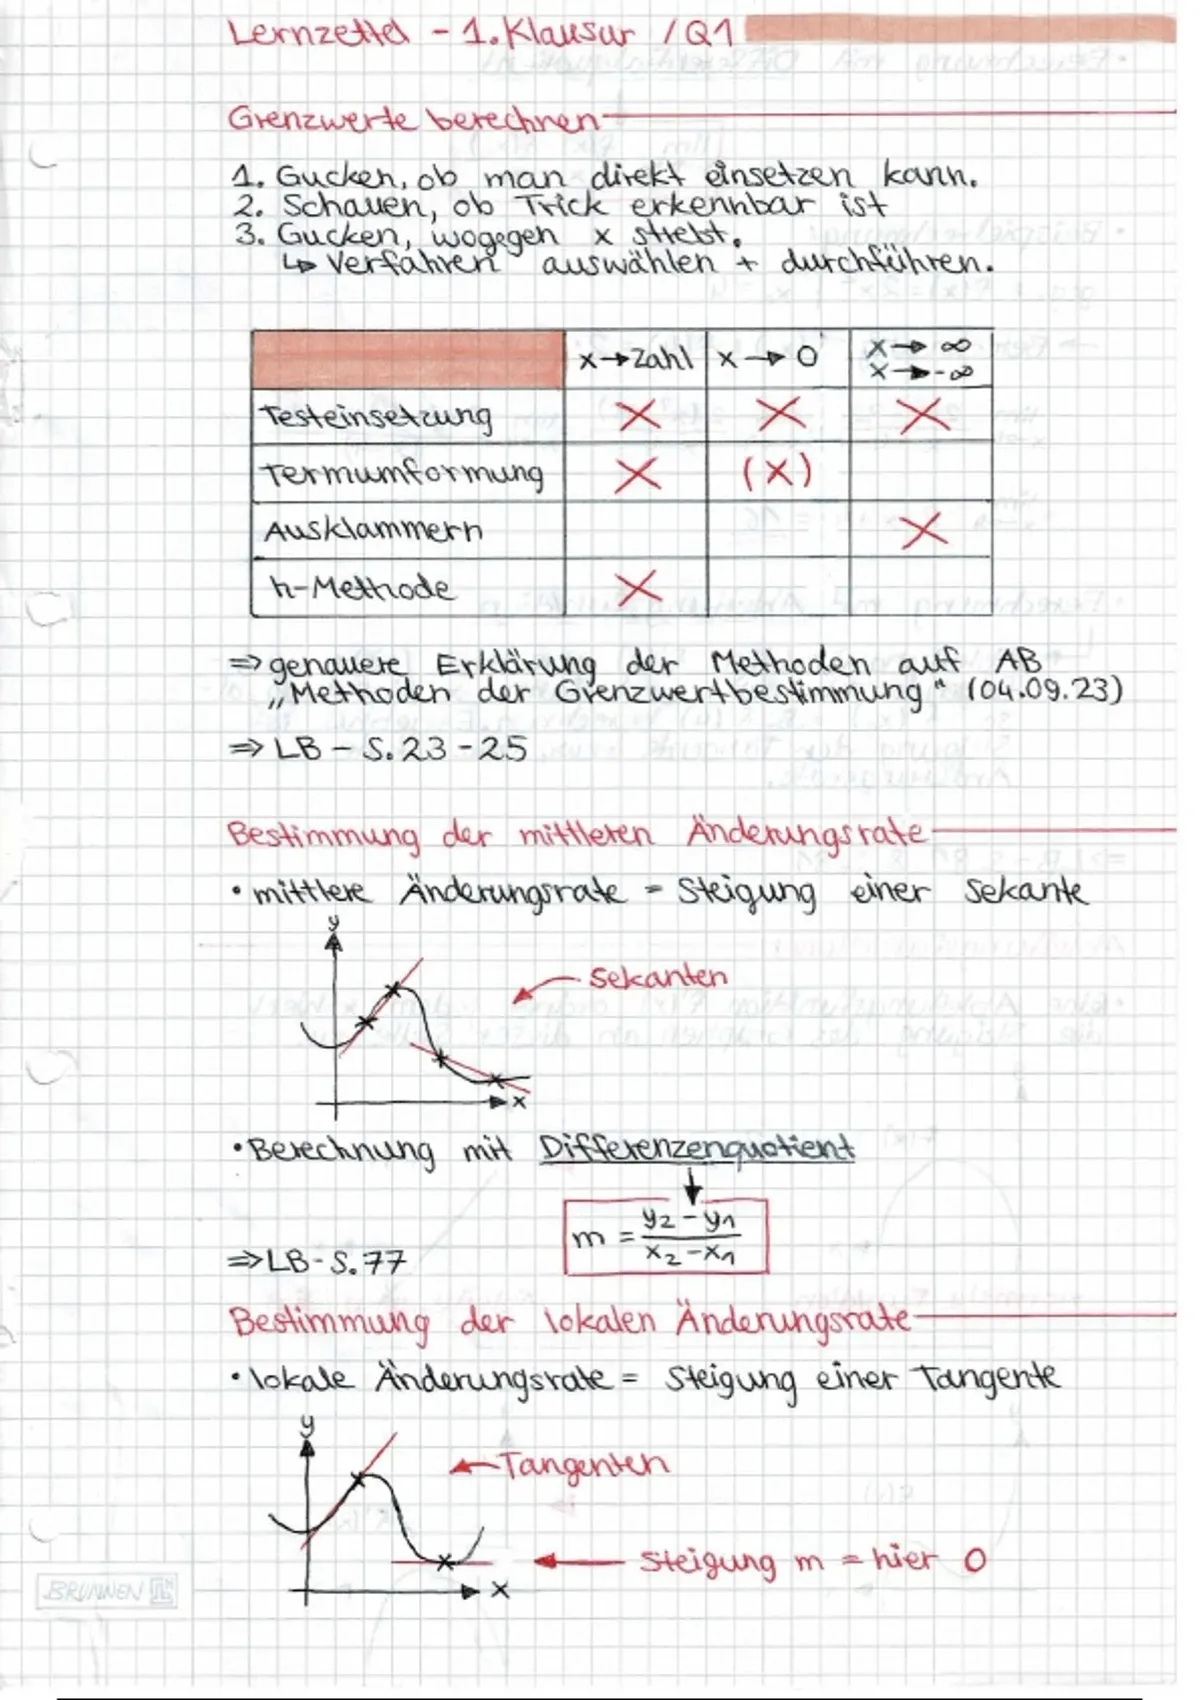 Lernzettel - 1. Klausur / Q1
Grenzwerte berechnen
1. Gucken, ob man direkt einsetzen kann.
2. Schauen, ob Trick erkennbar ist
3. Gucken, wogegen x strebt.
↳ Verfahren auswählen + durchführen.
x→Zahl x → 0 x → ∞
x → -∞
Testeinsetzung X X X
Termumformung X (X)
Ausklammern X
h-Methode X
⇒ genauere Erklärung der Methoden auf AB
„Methoden der Grenzwertbestimmung" (04.09.23)
⇒ LB - S. 23 - 25
Bestimmung der mittleren Änderungsrate
• mittlere Änderungsrate = Steigung einer Sekante
y
Sekanten
x
• Berechnung mit Differenzenquotient
m = (y₂ - y₁) / (x₂ - x₁)
⇒ LB - S. 77
Bestimmung der lokalen Änderungsrate
• lokale Änderungsrate = Steigung einer Tangente
y
Tangenten
Steigung m = hier 0
x
BRUNNEN